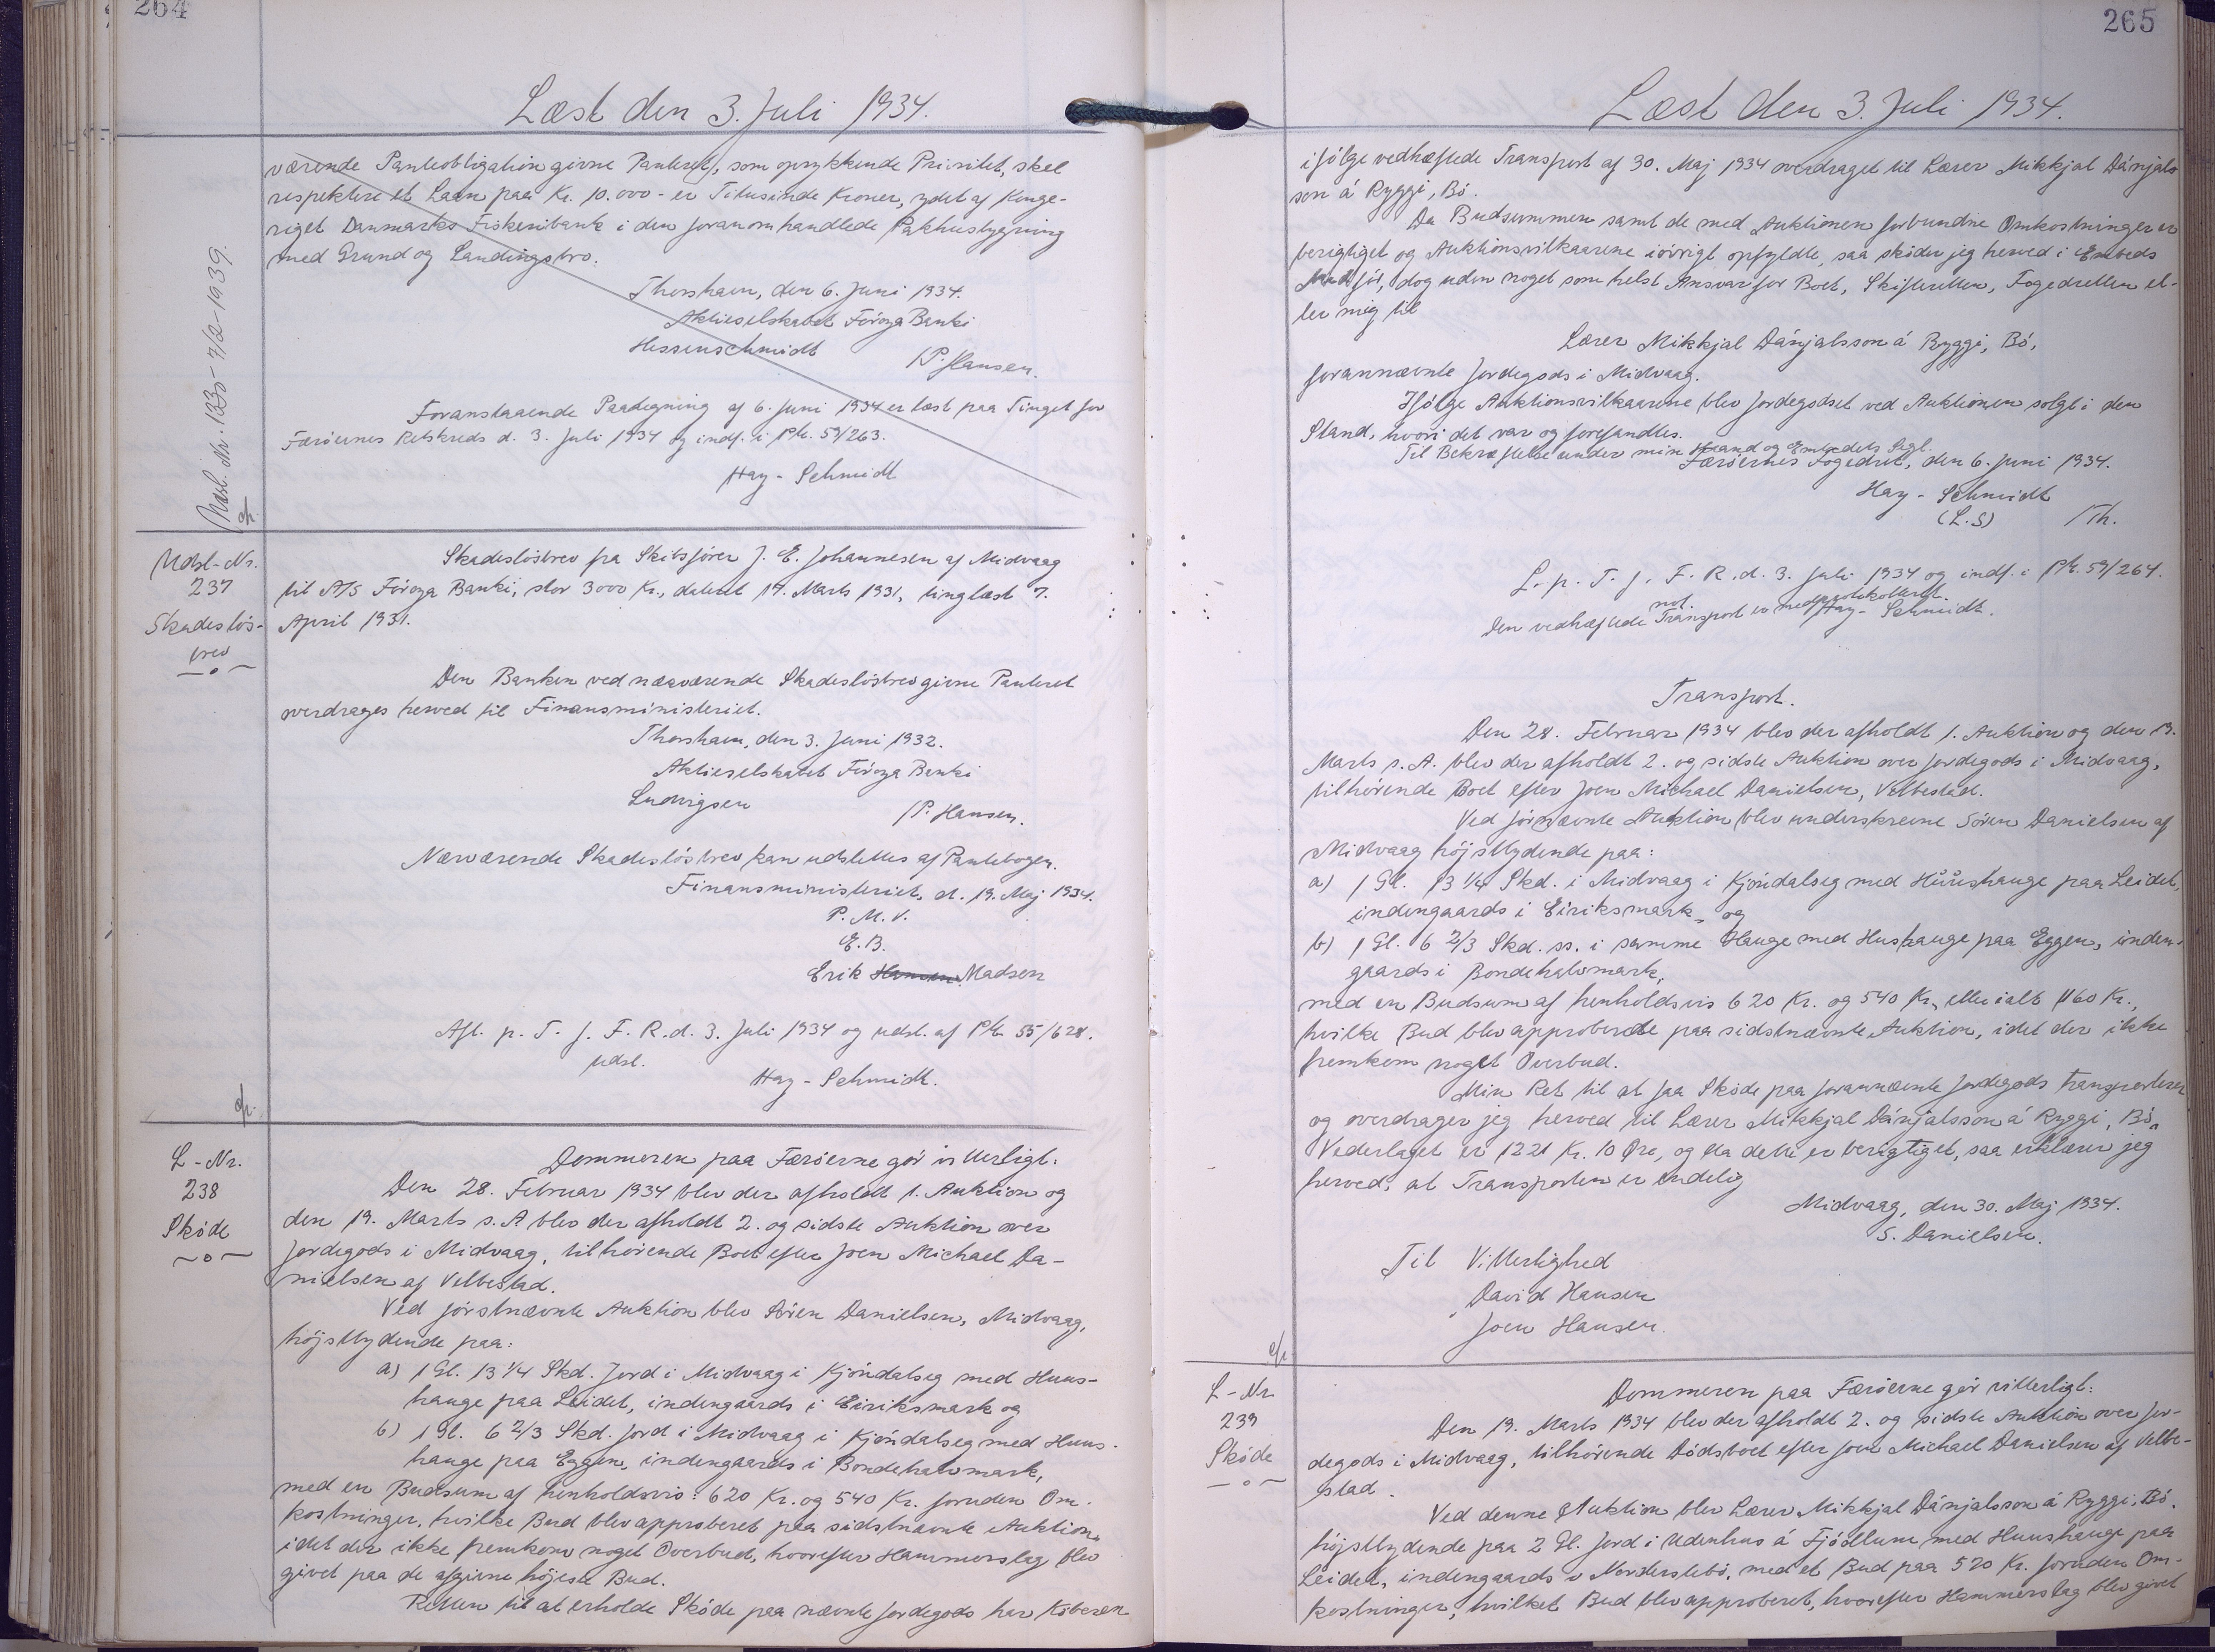 264
Læst den 3. Juli 1934.
værende Panteobligation givne Panteret, som oprykkende Prioritet, skal
respektere et Laan paa Kr. 10.000 - er Titusinde Kroner, ydet af Konge-
riget Danmarks Fiskeribank i den foranomhandlede Pakhusbygning
med Grund og Landingsbro.
Thorshavn, den 6. Juni 1934.
Aktieselskabet Föroya Banki
Hessenschmidt
/P. Hansen.
Foranstaaende Paategning af 6. Juni 1934 er læst paa Tinget for
Færöernes Retskreds d. 3. Juli 1934 og indf. i Ptb. 59/263.
Hay - Schmidt
Udsl. Nr. 133 - 7/2 - 1939.
Udsl-Nr.
237
Skadeslös-
brev
Skadeslösbrev fra Skibsförer J. E. Johannesen af Midvaag
til A/S Föroya Banki, stor 3000 Kr., dateret 17. Marts 1931, tinglæst 7.
April 1931.
Den Banken ved nærværende Skadeslösbrev givne Panteret
overdrages herved til Finansministeriet.
Thorshavn, den 3. Juni 1932.
Aktieselskabet Föroya Banki
Ludvigsen
/P. Hansen.
Nærværende Skadeslösbrev kan udslettes af Pantebogen.
Finansministeriet, d. 19. Maj 1934.
P. M. V.
E. B.
Erik Hansen Madsen
Afl. p. T. f. F. R. d. 3. Juli 1934 og udsl. af Ptb. 55/628.
udsl.
Hay - Schmidt.
L - Nr.
238
Sköde
Dommeren paa Færöerne gör vitterligt:
Den 28. Februar 1934 blev der afholdt 1. Auktion og
den 19. Marts s. A blev der afholdt 2. og sidste Auktion over
Jordegods i Midvaag, tilhörende Boet efter Joen Michael Da-
nielsen af Velbestad.
Ved förstnævnte Auktion blev Sören Danielsen, Midvaag,
höjstbydende paa:
a) 1 Gl. 13 1/4 Skd. Jord i Midvaag i Kjóndalseg med Huus-
hauge paa Leidet, indengaards i Eiriksmark og
b) 1 Gl. 6 2/3 Skd. Jord i Midvaag i Kjóndalseg med Huus-
hauge paa Eggen, indengaards i Bondehalvmark,
med en Budsum af henholdsvis: 620 Kr. og 540 Kr. foruden Om-
kostninger, hvilke Bud blev approberet paa sidstnævnte Auktion,
idet der ikke fremkom noget Overbud, hvorefter Hammerslag blev
givet paa de afgivne höjeste Bud.
Retten til at erholde Sköde paa nævnte Jordegods har Köberen
265
Læst den 3. Juli 1934.
ifölge vedhæftede Transport af 30. Maj 1934 overdraget til Lærer Mikkjal Dánjals
son á Ryggi, Bö.
Da Budsummen samt de med Auktionen forbundne Omkostninger er
berigtiget og Auktionsvilkaarene iövrigt opfyldte, saa sköder jeg herved i Embeds
Medför, dog uden noget som helst Ansvar for Boet, Skifteretten, Fogedretten el-
ler mig til
Lærer Mikkjal Dánjalsson á Ryggi, Bö,
forannævnte Jordegods i Midvaag.
Ifölge Auktionsvilkaarene blev Jordegodset ved Auktionen solgt i den
Stand, hvori det var og forefandtes.
Til Bekræftelse under min Haand og Embedets Segl.
Færöernes Fogedret, den 6. Juni 1934.
Hay - Schmidt
(L.S) /Th.
L. p. T. f. F. R. d. 3. Juli 1934 og indf. i Ptb. 59/264.
Den vedhæftede Transport er medprotokolleret.
not. Hay - Schmidt.
Transport.
Den 28. Februar 1934 blev der afholdt 1. Auktion og den 19.
Marts s. A. blev der afholdt 2. og sidste Auktion over Jordegods i Midvaag,
tilhörende Boet efter Joen Michael Danielsen, Velbestad.
Ved förnævnte Auktion blev underskrevne Sören Danielsen af
Midvaag höjstbydende paa:
a) 1 Gl. 13 1/4 Skd. i Midvaag i Kjóndalseg med Huushauge paa Leidet,
indengaards i Eiriksmark, og
b) 1 Gl. 6 2/3 Skd. ss. i samme Hauge med Hushauge paa Eggen, inden-
gaards i Bondehalvmark,
med en Budsum af henholdsvis 620 Kr. og 540 Kr, eller ialt 1160 Kr.,
hvilke Bud blev approberede paa sidstnævnte Auktion, idet der ikke
fremkom noget Overbud.
Min Ret til at faa Sköde paa forannævnte Jordegods transporterer
og overdrager jeg herved til Lærer Mikkjal Dánjalsson á Ryggi, Bö,
Vederlaget er 1221 Kr. 10 Öre, og da dette er berigtiget, saa erklærer jeg
herved, at Transporten er endelig
Midvaag, den 30. Maj 1934.
S. Danielsen.
Til Vitterlighed
David Hansen
Joen Hansen.
L - Nr.
239
Sköde
Dommeren paa Færöerne gör vitterligt:
Den 19. Marts 1934 blev der afholdt 2. og sidste Auktion over Jor-
degods i Midvaag, tilhörende Dödsboet efter Joen Michael Danielsen af Velbe-
stad.
Ved denne Auktion blev Lærer Mikkjal Dánjalsson á Ryggi, Bö,
höjstbydende paa 2 Gl. Jord i Udenhus á Fjödlum med Huushauge paa
Leidet, indengaards v Norderstebö, med et Bud paa 520 Kr. foruden Om-
kostninger, hvilket Bud blev approberet, hvorefter Hammerslag blev givet